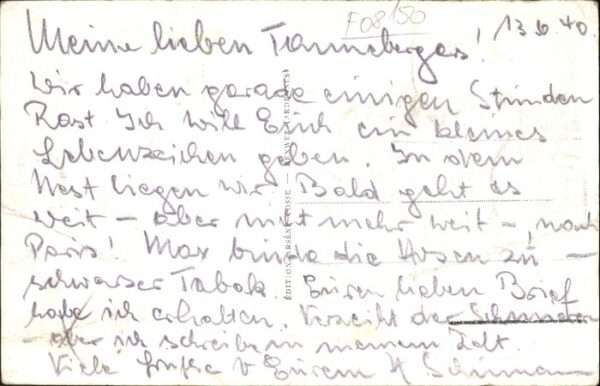 F08/50
Meine lieben Tanneberger! 13.6.40.
Wir haben gerade einigen Stunden
Rast Ich will Euch ein kleines
Lebenzeichen geben. In dem
Nest liegen wir. Bald geht es
weit – aber nicht mehr weit –, nach
Paris! Max binde die Hosen zu –
schwarzer Tabak. Euren lieben Brief
habe ich erhalten. Verzeiht der
– aber ich schreibe in meinem Zelt.
Viele Grüße v Eurem H
ÉDITION ARSÈNE